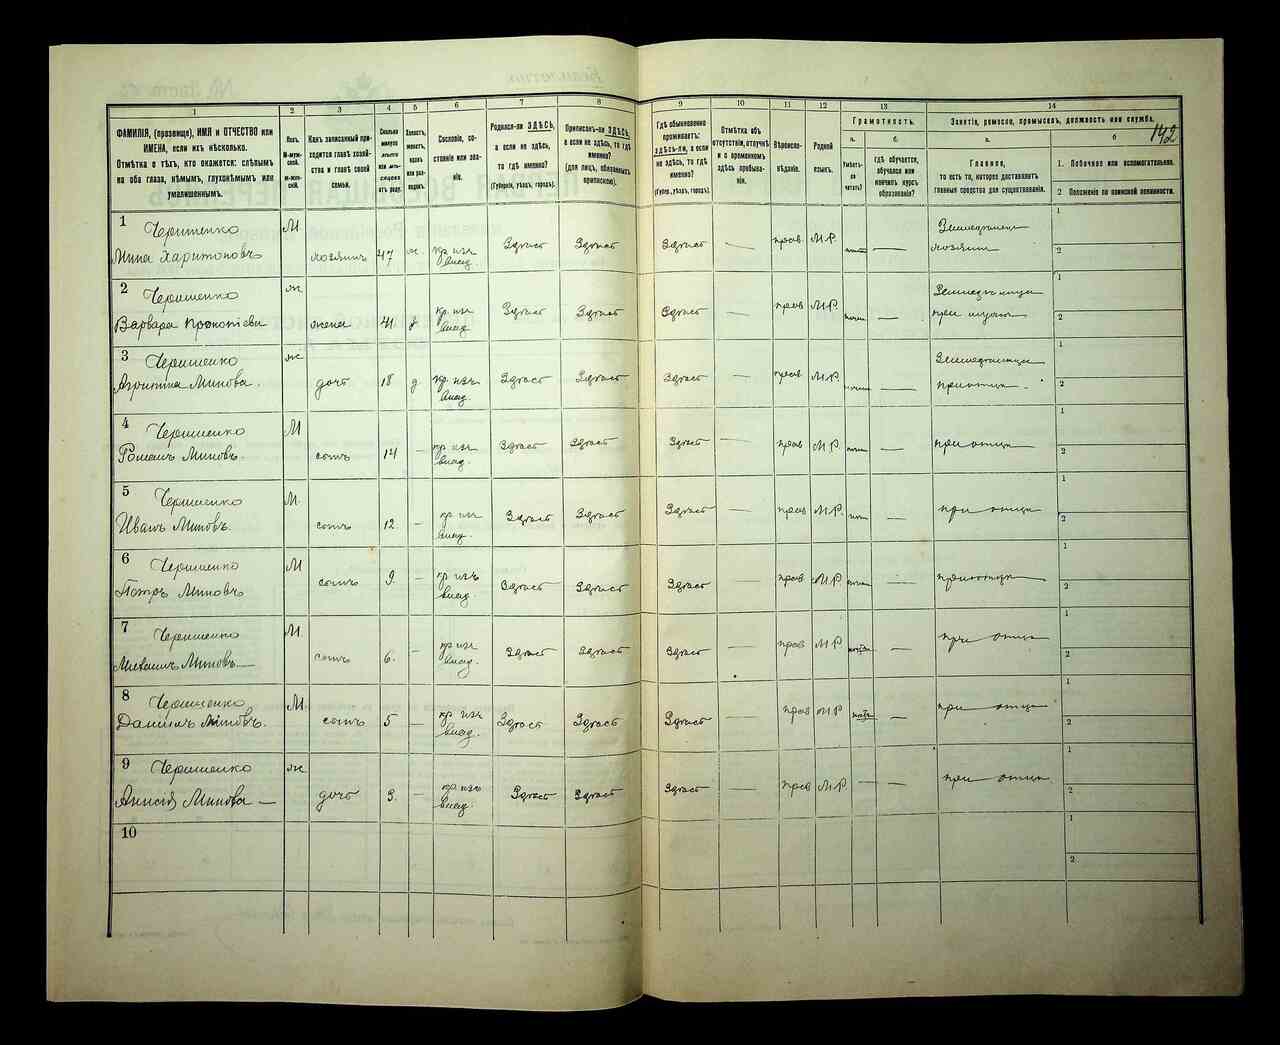 1 2 3 4 5 6 7 8 9 10 11 12 13 14
142
ФАМИЛІЯ, (прозвище), ИМЯ и ОТЧЕСТВО или
ИМЕНА, если ихъ нѣсколько.
Отмѣтка о тѣхъ, кто окажется: слѣпымъ
на оба глаза, нѣмымъ, глухонѣмымъ или
умалишеннымъ.
Полъ.
М-мужской.
Ж-женскій.
Какъ записанный приходится
главѣ хозяйства
и главѣ своей
семьи.
Сколько
минуло
лѣтъ
или мѣсяцевъ
отъ роду.
Холостъ,
женатъ,
вдовъ
или разведенъ.
Сословіе, состояніе
или званіе.
Родился-ли ЗДѢСЬ,
а если не здѣсь,
то гдѣ именно?
(Губернія, уѣздъ, городъ).
Приписанъ-ли ЗДѢСЬ,
а если не здѣсь, то гдѣ
именно?
(для лицъ, обязанныхъ
припискою).
Гдѣ обыкновенно
проживаетъ:
здѣсь-ли, а если
не здѣсь, то гдѣ
именно?
(Губер., уѣздъ, городъ).
Отмѣтка объ
отсутствіи, отлучкѣ
и о временномъ
здѣсь пребываніи.
Вѣроисповѣданіе.
Родной
языкъ.
Грамотность.
а.
Умѣетъ-ли
читать?
б.
гдѣ обучается,
обучался или
кончилъ курсъ
образованія?
Занятія, ремесло, промыселъ, должность или служба.
а.
Главное,
то есть то, которое доставляетъ
главныя средства для существованія.
б
1. Побочное или вспомогательное.
2 Положеніе по воинской повинности.
1 Чериненко М. 1
Мина Харитоновъ хозяинъ 47 ж. кр. изъ влад. Здѣсь Здѣсь Здѣсь — прав. М.Р. — хозяинъ 2
2 Чериненко ж. 1
Варвара Прокопіева жена 41 кр. изъ влад. Здѣсь Здѣсь Здѣсь — прав М.Р. — при мужѣ 2
3 Чериненко ж 1
Агрипина Минова. дочь 18 д кр. изъ влад. Здѣсь Здѣсь Здѣсь — прав М.Р. — при отцѣ 2
4 Чериненко М 1
Романъ Миновъ. сынъ 14 — кр изъ влад. Здѣсь Здѣсь Здѣсь — прав М.Р. — при отцѣ 2
5 Чериненко М. 1
Иванъ Миновъ. сынъ 12. — кр изъ влад. Здѣсь Здѣсь Здѣсь — прав М.Р. — при отцѣ 2
6 Чериненко М 1
Петръ Миновъ сынъ 9. — кр изъ влад. Здѣсь Здѣсь Здѣсь — прав М.Р. — при отцѣ 2
7 Чериненко М. 1
Михаилъ Миновъ — сынъ 6. — кр изъ влад. Здѣсь Здѣсь Здѣсь — прав М.Р. — при отцѣ 2
8 Чериненко М. 1
Даниилъ Миновъ. сынъ 5 — кр изъ влад. Здѣсь Здѣсь Здѣсь — прав М.Р — при отцѣ 2
9 Чериненко ж 1
Анисія Минова — дочь 3. — кр изъ влад. Здѣсь Здѣсь Здѣсь — прав М.Р. — — при отцѣ 2
10 1
2.